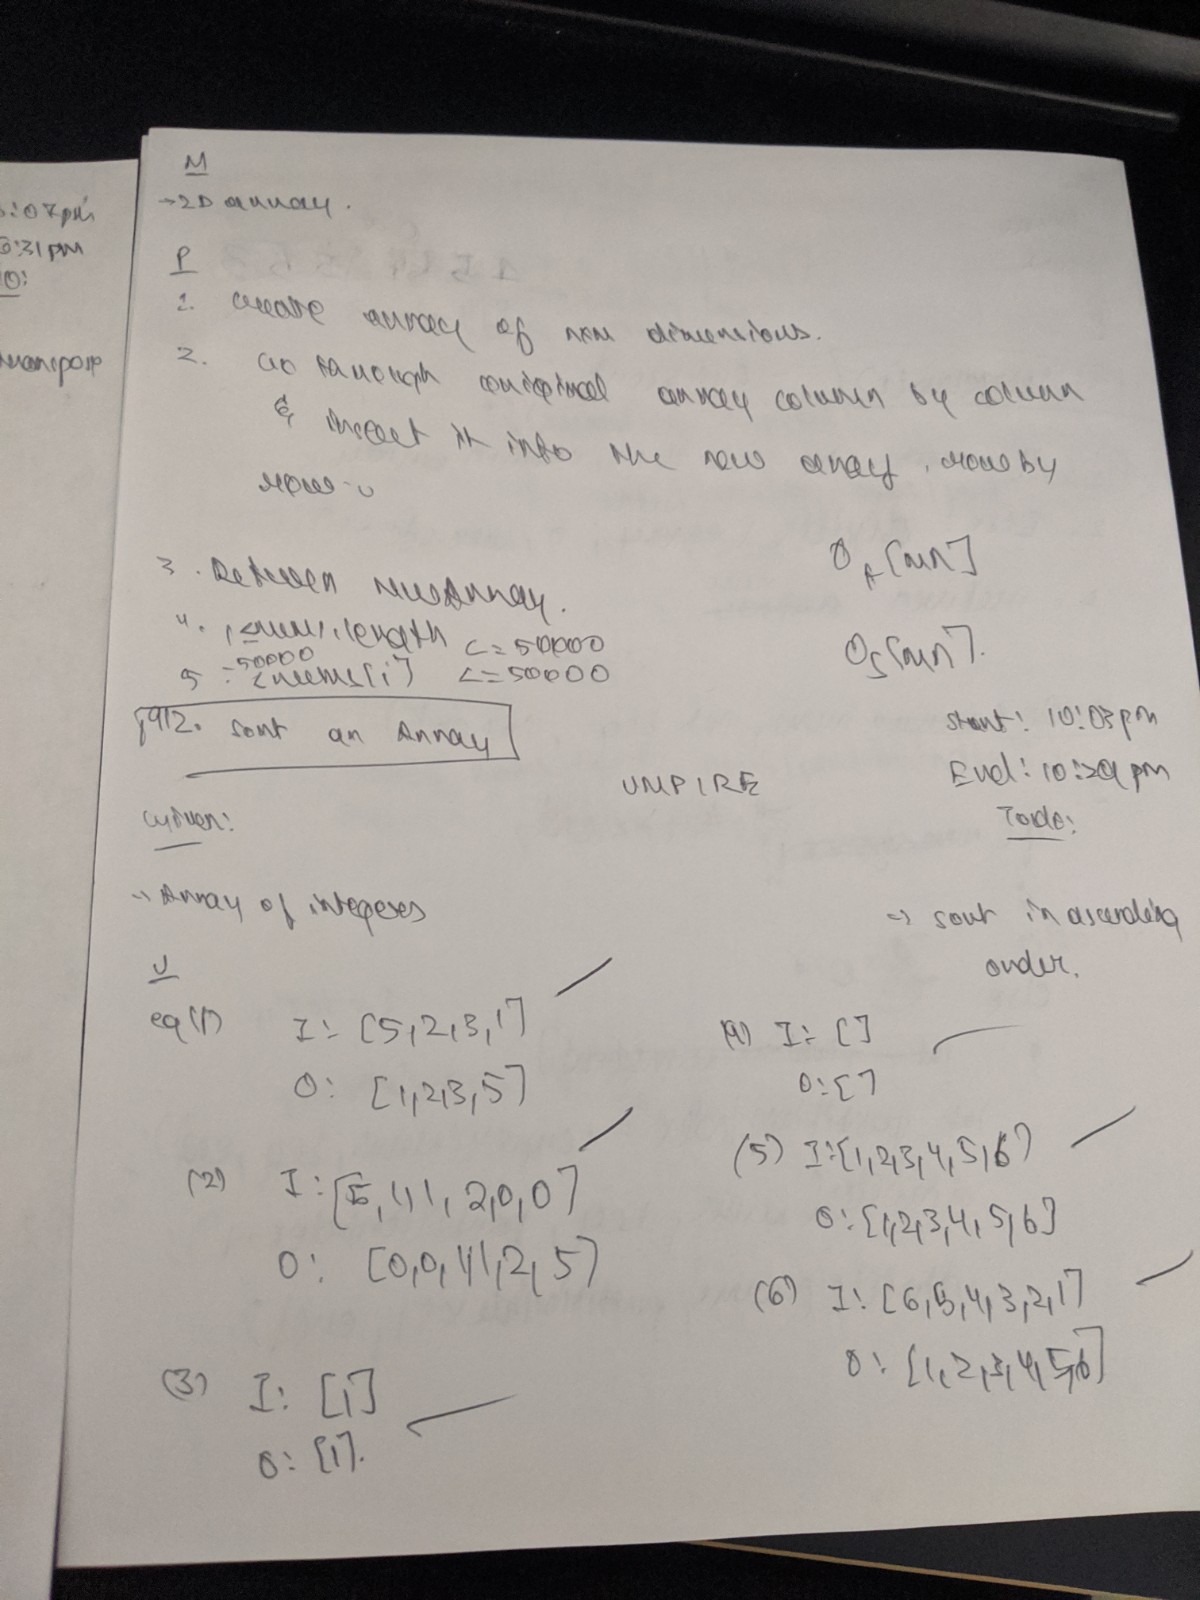 5:07pm
6:31pm
M
→2D array.
P
1. create array of nxm dimensions.
2. Go through original array column by column
& insert it into the new array, row by
row.
3. Return NewArray.
OT[mn]
OS[mn].
4. 1<=nums.length <=50000
5 -50000<=nums[i] <=50000
912. Sort an Array
UMPIRE
Start: 10:03pm
End: 10:29pm
Given:
Todo:
→ Array of integers
→ sort in ascending
order.
U
eg(1) I: [5,2,3,1]
O: [1,2,3,5]
(2) I: [5,1,1,2,0,0]
O: [0,0,1,1,2,5]
(3) I: [1]
O: [1].
(4) I: []
O: []
(5) I: [1,2,3,4,5,6]
O: [1,2,3,4,5,6]
(6) I: [6,5,4,3,2,1]
O: [1,2,3,4,5,6]